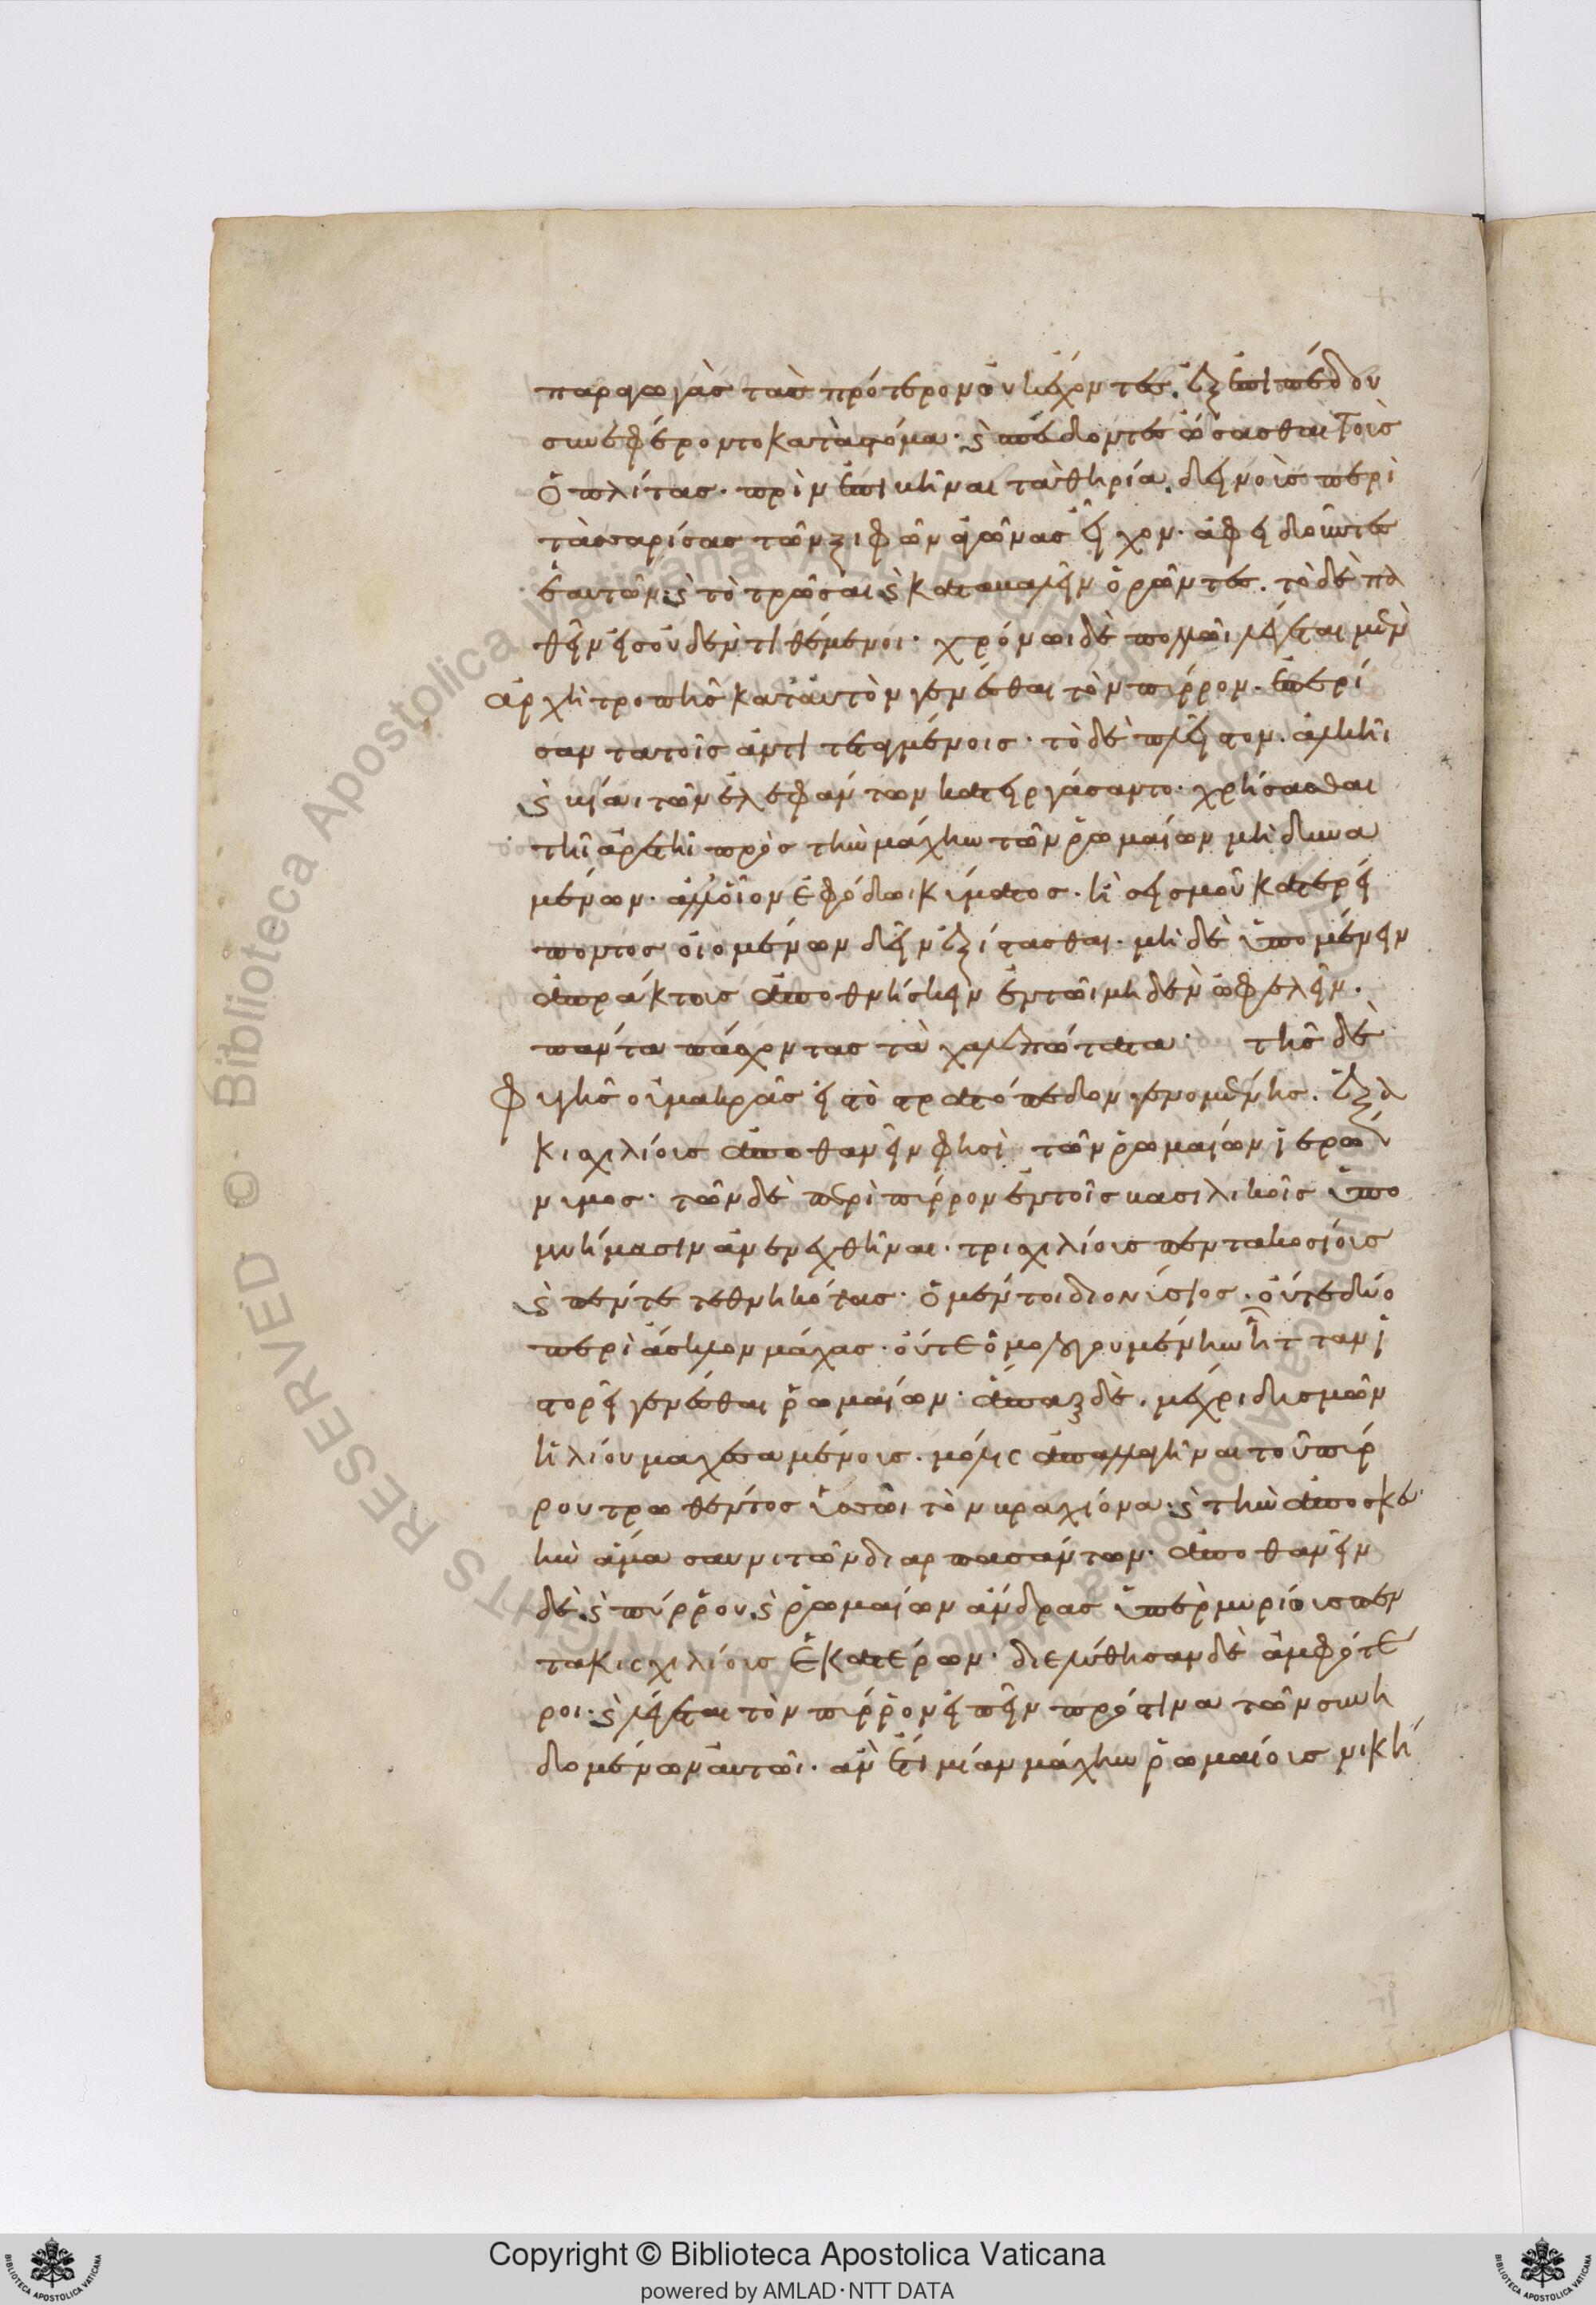 παραγωγὰς τὰς πρότερον οὐκ ἔχοντες. ἐξ ἐπιπέδου
συνεφέροντο κατὰ στόμα· καὶ σπεύδοντες ὤσασθαι τοὺς
ὁπλίτας· πρὶν ἐπιβῆναι τὰ θηρία. δεινοὺς περὶ
τὰς σαρίσας τῶν ξιφῶν ἀγῶνας εἶχον· ἀφειδοῦντες
ἑαυτῶν· καὶ τὸ τρῶσαι καὶ καταβαλεῖν ὁρῶντες. τὸ δὲ πα
θεῖν εἰς οὐδὲν τιθέμενοι· χρόνωι δὲ πολλῶι λέγεται μὲν
ἀρχὴ τροπῆς κατ' αὐτὸν γενέσθαι τὸν πύρρον. ἐπερεί
σαντα τοῖς ἀντιτεταγμένοις· τὸ δὲ πλεῖστον. ἀλκῆι
καὶ βίαι τῶν ἐλεφάντων κατειργάσαντο· χρήσασθαι
τῆι ἀρετῆι πρὸς τὴν μάχην τῶν ῥωμαίων μὴ δυνα
μένων· ἀλλ' οἷον ἐφόδωι κύματος. ἢ σεισμοῦ κατερεί
ποντος οἰομένων δεῖν ἐξίστασθαι· μὴ δὲ ὑπομένειν
ἀπράκτους ἀποθνήσκειν ἐν τῶι μηδὲν ὠφελεῖν.
πάντα πάσχοντας τὰ χαλεπώτατα· τῆς δὲ
φυγῆς οὐ μακρᾶς εἰς τὸ στρατόπεδον γενομένης. ἑξα
κισχιλίους ἀποθανεῖν φησὶ τῶν ῥωμαίων ἱερώ
νυμος· τῶν δὲ περὶ πύρρον ἐν τοῖς βασιλικοῖς ὑπο
μνήμασιν ἀνενεχθῆναι· τρισχιλίους πεντακοσίους
καὶ πέντε τεθνηκότας· ὁ μέντοι διονύσιος· οὔτε δύο
περὶ ἄσκλον μάχας· οὔτε ὁμολογουμένην ἧτταν ἱ
στορεῖ γενέσθαι ῥωμαίων· ἅπαξ δὲ. μέχρι δυσμῶν
ἡλίου μαχεσαμένους. μόλις ἀπαλλαγῆναι τοῦ πύρ
ρου τρωθέντος ὑσσῶι τὸν βραχίονα· καὶ τὴν ἀποσκευ
ὴν ἅμα σαυνιτῶν διαρπασάντων· ἀποθανεῖν
δὲ καὶ πύρρου καὶ ῥωμαίων ἄνδρας ὑπὲρ μυρίους πεν
τακισχιλίους ἑκατέρων· διελύθησαν δὲ ἀμφότε
ροι· καὶ λέγεται τὸν πύρρον εἰπεῖν πρός τινα τῶν συνη
δομένων αὐτῶι· ἂν ἔτι μίαν μάχην ῥωμαίους νική